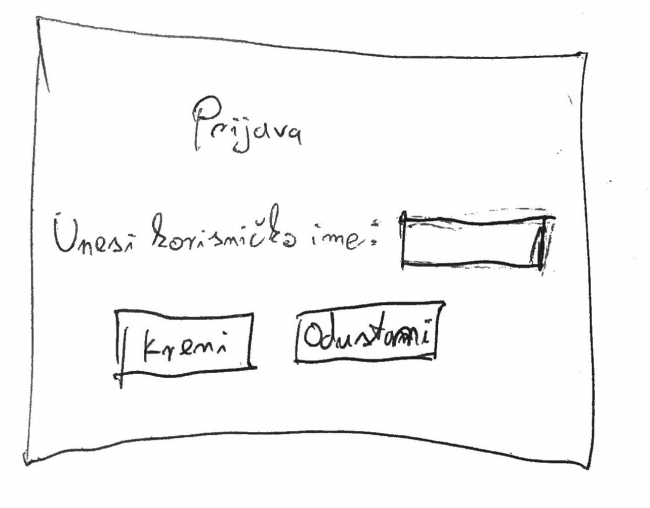 Prijava
Unesi korisničko ime:
Kreni
Odustani